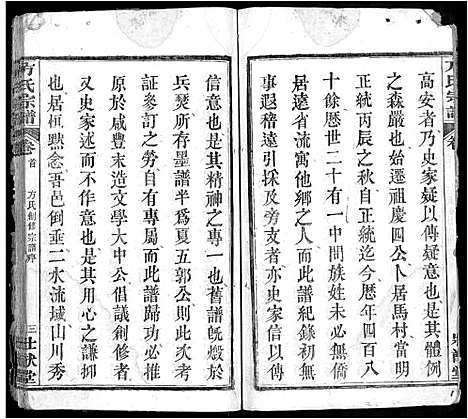 方氏宗譜
高安者乃史家疑以傳疑意也是其體例
之森嚴也始遷祖慶四公卜居馬村當明
正統丙辰之秋自正統迄今曆年四百八
十餘歷世二十有一中間族姓未必無僑
居遼省流寓他鄉之人而此譜紀錄初無
事遐稽遠引以及旁支者亦史家信以傳
信意也是又其精神之專一也舊譜既燬於
兵燹所存墨譜半爲夏五郭公則此次考
証參訂之勞自有專屬而此譜歸功必推
原於咸豐末造文學大中公倡議創修者
又與史家述而不作意也是其用心之謙抑
也居恒黙念吾邑倒垂二水流域山川秀
方氏宗譜
卷首
方氏創修宗譜序
三